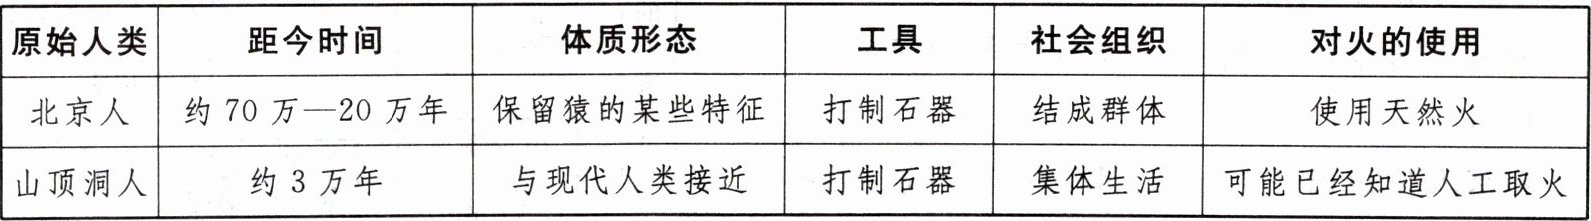 原始人类 距今时间 体质形态 工具 社会组织 对火的使用
北京人 约70万—20万年 保留猿的某些特征 打制石器 结成群体 使用天然火
山顶洞人 约3万年 与现代人类接近 打制石器 集体生活 可能已经知道人工取火